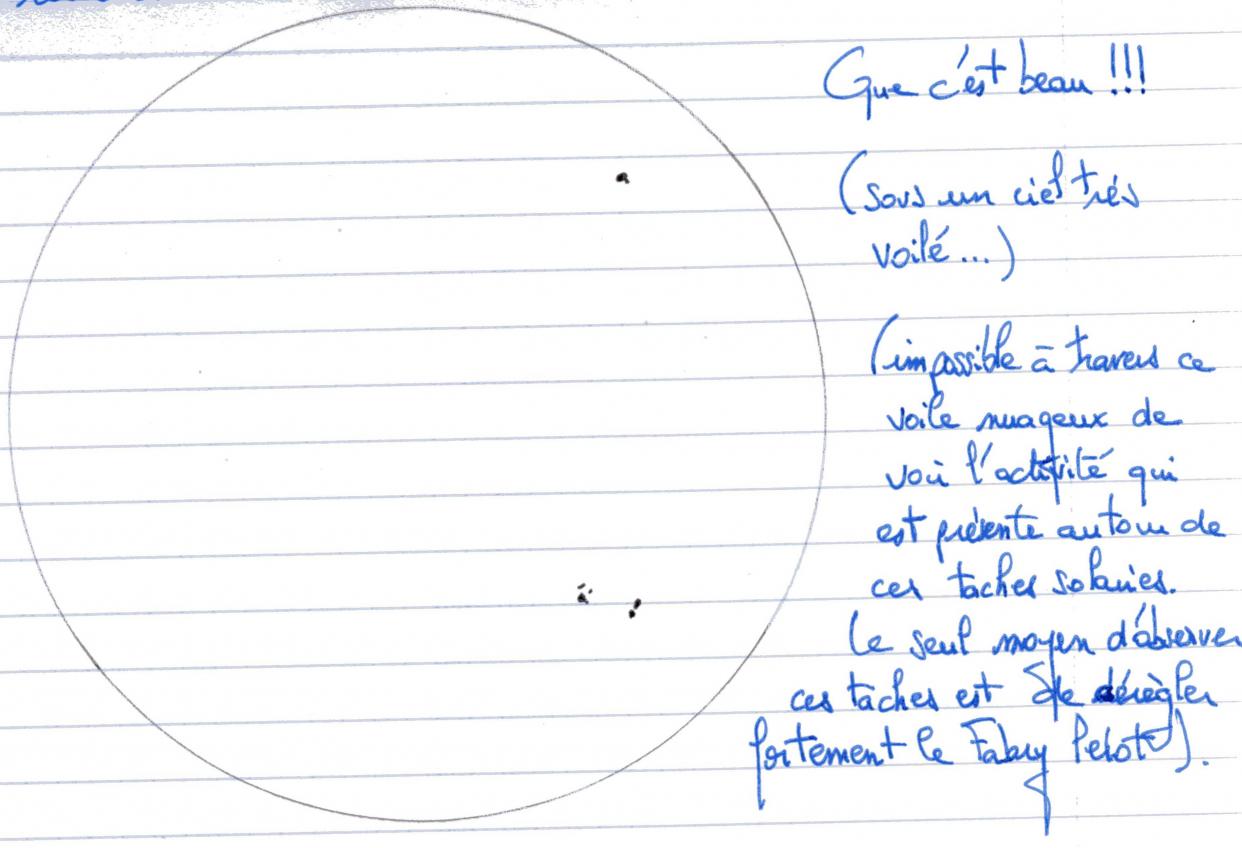 Que c'est beau !!!
(sous un ciel très
voilé...)
(impossible à travers ce
voile nuageux de
voir l'activité qui
est présente autour de
ces taches solaires.
Le seul moyen d'observer
ces taches est de dérègler
fortement le Fabry Pérot).